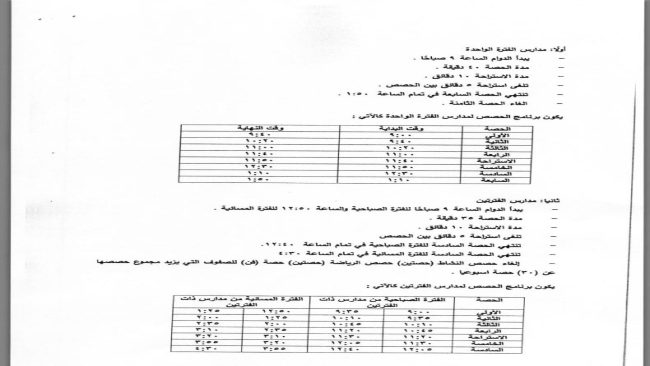 أولًا: مدارس الفترة الواحدة
– يبدأ الدوام الساعة ٩ صباحًا .
– مدة الحصة ٤٠ دقيقة .
– مدة الاستراحة ١٠ دقائق .
– تلغى استراحة ٥ دقائق بين الحصص .
– تنتهي الحصة السابعة في تمام الساعة ١:٥٠ .
– الغاء الحصة الثامنة .
يكون برنامج الحصص لمدارس الفترة الواحدة كالآتي :
الحصة وقت البداية وقت النهاية
الأولى ٩:٠٠ ٩:٤٠
الثانية ٩:٤٠ ١٠:٢٠
الثالثة ١٠:٢٠ ١١:٠٠
الرابعة ١١:٠٠ ١١:٤٠
الاستراحة ١١:٤٠ ١١:٥٠
الخامسة ١١:٥٠ ١٢:٣٠
السادسة ١٢:٣٠ ١:١٠
السابعة ١:١٠ ١:٥٠
ثانيا: مدارس الفترتين
– يبدأ الدوام الساعة ٩ صباحًا للفترة الصباحية والساعة ١٢:٥٠ للفترة المسائية .
– مدة الحصة ٣٥ دقيقة .
– مدة الاستراحة ١٠ دقائق .
– تلغى استراحة ٥ دقائق بين الحصص
– تنتهي الحصة السادسة للفترة الصباحية في تمام الساعة ١٢:٤٠.
– تنتهي الحصة السادسة للفترة المسائية في تمام الساعة ٤:٣٠
– إلغاء حصص النشاط (حصتين) حصص الرياضة (حصتين) حصة (فن) للصفوف التي يزيد مجموع حصصها
عن (٣٠) حصة اسبوعيا .
يكون برنامج الحصص لمدارس الفترتين كالآتي :
الحصة الفترة الصباحية من مدارس ذات الفترتين الفترة المسائية من مدارس ذات الفترتين
الأولى ٩:٠٠ ٩:٣٥ ١٢:٥٠ ١:٢٥
الثانية ٩:٣٥ ١٠:١٠ ١:٢٥ ٢:٠٠
الثالثة ١٠:١٠ ١٠:٤٥ ٢:٠٠ ٢:٣٥
الرابعة ١٠:٤٥ ١١:٢٠ ٢:٣٥ ٣:١٠
الاستراحة ١١:٢٠ ١١:٣٠ ٣:١٠ ٣:٢٠
الخامسة ١١:٣٠ ١٢:٠٥ ٣:٢٠ ٣:٥٥
السادسة ١٢:٠٥ ١٢:٤٠ ٣:٥٥ ٤:٣٠